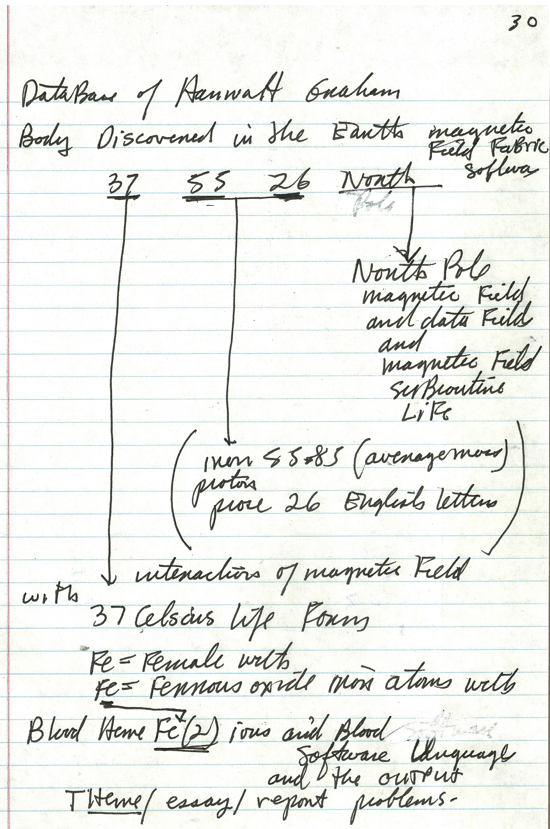 30
DataBase of Hanwalt Graham
Body Discovered in the Earths magnetic
Field Fabric
Software
37 55 26 North
Pole
North Pole
magnetic Field
and data Field
and
magnetic Field
suBroutine
LiFe
iron 55.85 (average mass)
protons
prose 26 English letters
interactions of magnetic Field
with
37 Celsius life Forms
Fe = Female with
Fe = Ferrous oxide iron atoms with
Blood Heme Fe(2) ions and Blood
Software Language
and the output
THeme/ essay/ report problems.